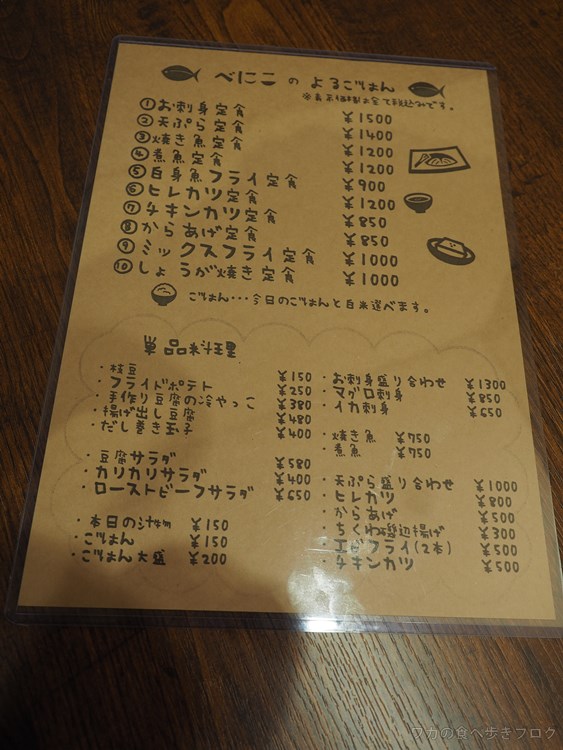 べにこ の よるごはん
※表示価格は全て税込みです。
①お刺身定食 ¥1500
②天ぷら定食 ¥1400
③焼き魚定食 ¥1200
④煮魚定食 ¥1200
⑤白身魚フライ定食 ¥900
⑥ヒレカツ定食 ¥1200
⑦チキンカツ定食 ¥850
⑧からあげ定食 ¥850
⑨ミックスフライ定食 ¥1000
⑩しょうが焼き定食 ¥1000
ごはん・・・今日のごはんと白米選べます。
単品料理
・枝豆 ¥150
・フライドポテト ¥250
・手作り豆腐の冷やっこ ¥380
・揚げ出し豆腐 ¥480
・だし巻き玉子 ¥400
・豆腐サラダ ¥580
・カリカリサラダ ¥400
・ローストビーフサラダ ¥650
・本日の汁物 ¥150
・ごはん ¥150
・ごはん大盛 ¥200
・お刺身盛り合わせ ¥1300
・マグロ刺身 ¥850
・イカ刺身 ¥650
・焼き魚 ¥750
・煮魚 ¥750
・天ぷら盛り合わせ ¥1000
・ヒレカツ ¥800
・からあげ ¥500
・ちくわ磯辺揚げ ¥300
・エビフライ(2本) ¥500
・チキンカツ ¥500
ワカの食べ歩きブログ